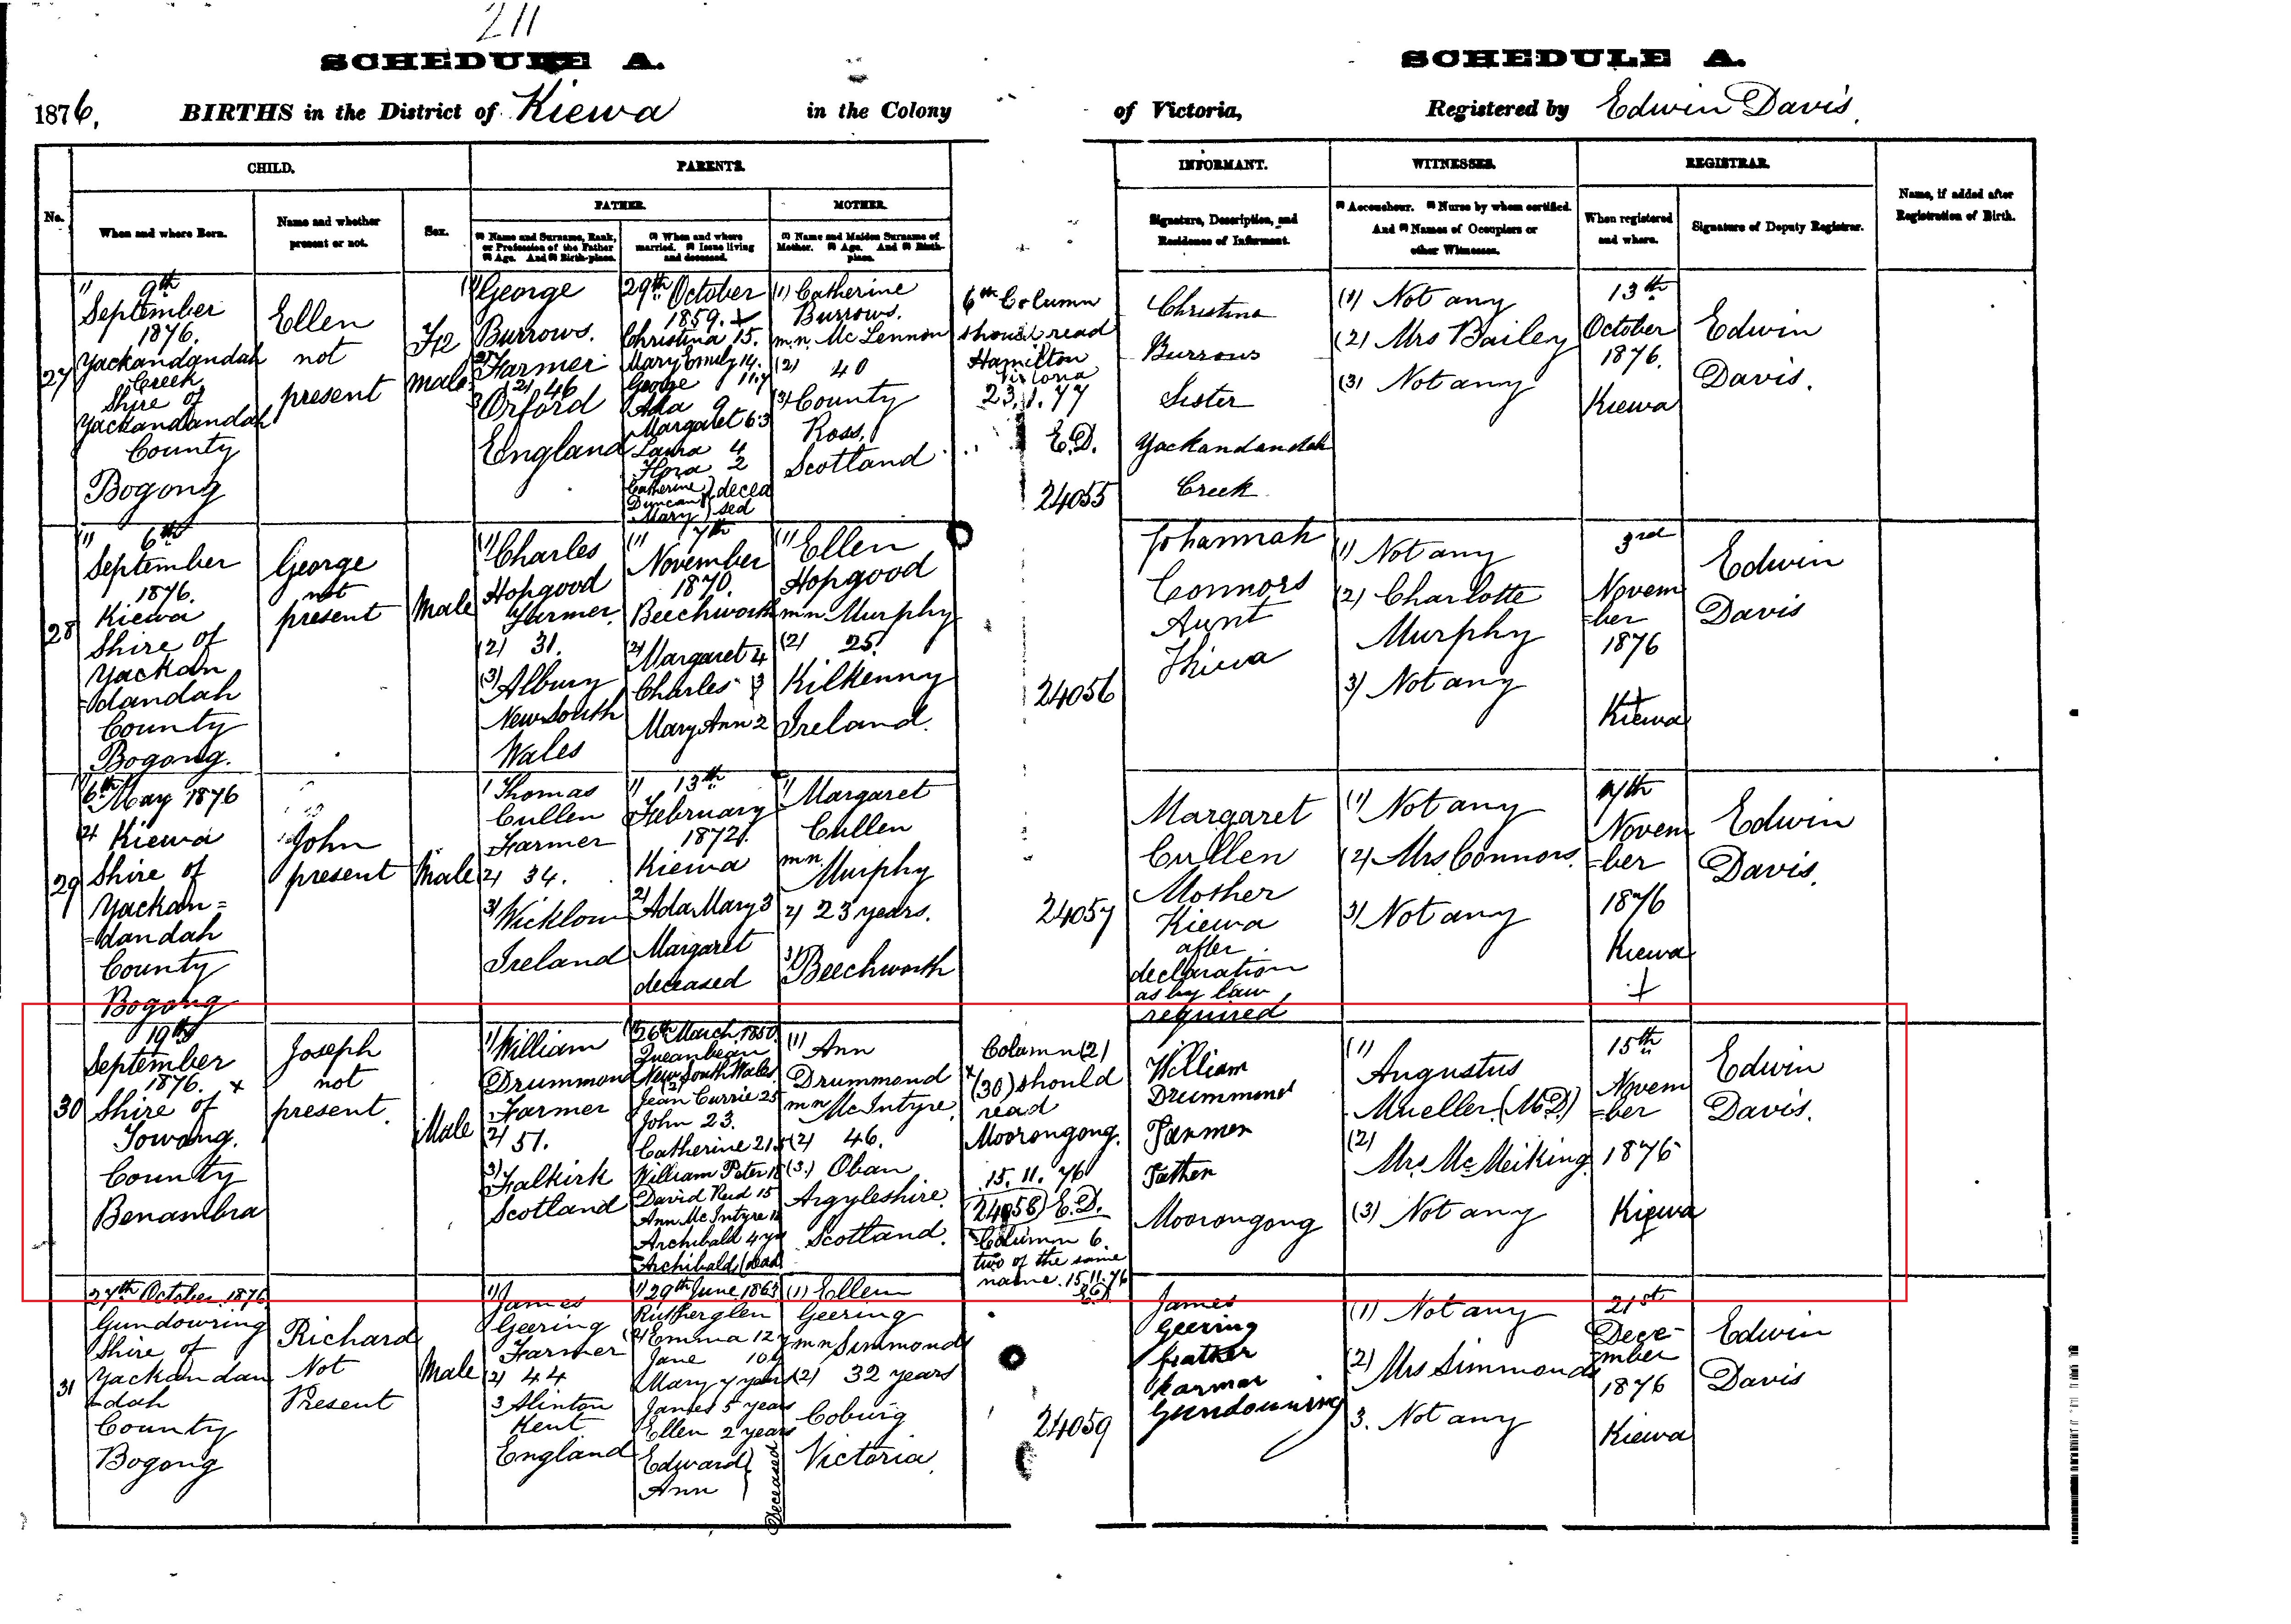 211
SCHEDULE A.
SCHEDULE A.
1876. BIRTHS in the District of Kiewa in the Colony of Victoria, Registered by Edwin Davis.
CHILD.
PARENTS.
INFORMANT.
WITNESSES.
REGISTRAR.
Name, if added after
Registration of Birth.
No.
When and where Born.
Name and whether
present or not.
Sex.
FATHER.
MOTHER.
(1) Name and Surname, Rank,
or Profession of the Father
(2) Age. And (3) Birth-place.
(1) When and where
married. (2) Issue living
and deceased.
(1) Name and Maiden Surname of
Mother. (2) Age. And (3) Birth-
place.
Signature, Description, and
Residence of Informant.
(1) Accoucheur. (2) Nurse by whom certified.
And (3) Names of Occupiers or
other Witnesses.
When registered
and where.
Signature of Deputy Registrar.
27
(1) 9th
September
1876.
Yackandandah
Creek
Shire of
Yackandandah
County
Bogong
Ellen
not
present
Fe
male
(1) George
Burrows.
Farmer
(2) 46
3 Orford
England
29th October
1859. +
Christina 15.
Mary Emily 14.
George 11.7
Ada 9
Margaret 6.3
Laura 4
Flora 2
Catherine } decea
Duncan } sed
Mary }
(1) Catherine
Burrows.
m.n. Mc Lennon
(2) 40
(3) County
Ross,
Scotland
6th Column
should read
Hamilton
Victoria
23.1.77
E.D.
24055
Christina
Burrows
Sister
Yackandandah
Creek
(1) Not any
(2) Mrs Bailey
(3) Not any
13th
October
1876.
Kiewa
Edwin
Davis.
28
(1) 6th
September
1876.
Kiewa
Shire of
Yackan
=dandah
County
Bogong.
George
not
present
Male
(1) Charles
Hopgood
Farmer.
(2) 31.
(3) Albury
New South
Wales
(1) 7th
November
1870.
Beechworth
(2) Margaret 4
Charles 3
Mary Ann 2
(1) Ellen
Hopgood
m.n Murphy
(2) 25.
Kilkenny
Ireland.
24056
Johannah
Connors
Aunt
Kiewa
(1) Not any
(2) Charlotte
Murphy
3) Not any
3rd
Novem
=ber
1876
Kiewa
Edwin
Davis
29
(1) 6th May 1876
(2) Kiewa
Shire of
Yackan=
=dandah
County
Bogong
John
present
Male
1 Thomas
Cullen
Farmer
2) 34.
3) Wicklow
Ireland
1) 13th
February
1872.
Kiewa
2) Ada Mary 3
Margaret
deceased
1) Margaret
Cullen
m.n.
Murphy
2) 23 years.
3) Beechworth
24057
Margaret
Cullen
Mother
Kiewa
after
declaration
as by law
required
(1) Not any
(2) Mrs Connors.
3) Not any
7th
Novem
=ber
1876
Kiewa
+
Edwin
Davis.
30
19th
September
1876. x
Shire of
Towong.
County
Benambra
Joseph
not
present.
Male
1) William
Drummond
Farmer
(2) 51.
3) Falkirk
Scotland
(1) 26th March 1850
Queanbean
New South Wales
(2)
Jean Currie 25
John 23.
Catherine 21.
William Peter 18
David Reid 15
Ann McIntyre
Archibald 4 yrs
Archibald (dead)
(1) Ann
Drummond
m.n McIntyre.
(2) 46.
(3.) Oban
Argyleshire.
Scotland.
Column (2)
x (30) should
read
Moorongong.
15. 11. 76
24058 E.D.
Column 6.
two of the same
name. 15.11.76
E.D.
William
Drummond
Farmer
Father
Moorongong
(1)
Augustus
Mueller. (M.D.)
(2)
Mrs McMeiking
(3) Not any
15th
Novem
=ber
1876
Kiewa
Edwin
Davis.
31
27th October. 1876
Gundowring
Shire of
Yackandan
=dah
County
Bogong
Richard
Not
Present
Male
1) James
Geering
Farmer
(2) 44
3 Alinton
Kent
England
1) 29th June 1863
Rutherglen
(2) Emma 12 y
Jane 10 y
Mary 7 years
James 5 years
Ellen 2 years
Edward }
Ann } Deceased
(1) Ellen
Geering
m n Simmonds
(2) 32 years
Coburg
Victoria.
24059
James
Geering
Feather
Farmar
Gundowring
(1) Not any
(2) Mrs Simmonds
3. Not any
21st
Dece-
mber
1876
Kiewa
Edwin
Davis